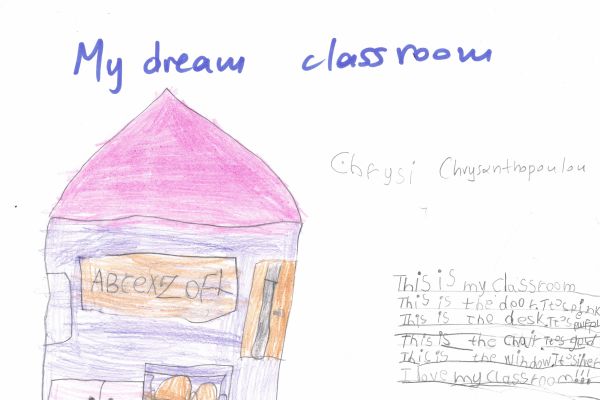 My dream classroom
Chrysi Chrysanthopoulou
ABCexZ oft
This is my classroom
This is the door. It's pink
This is the desk It's purple
This is the chair It's gold
This is the window. It's silver
I love my classroom!!!